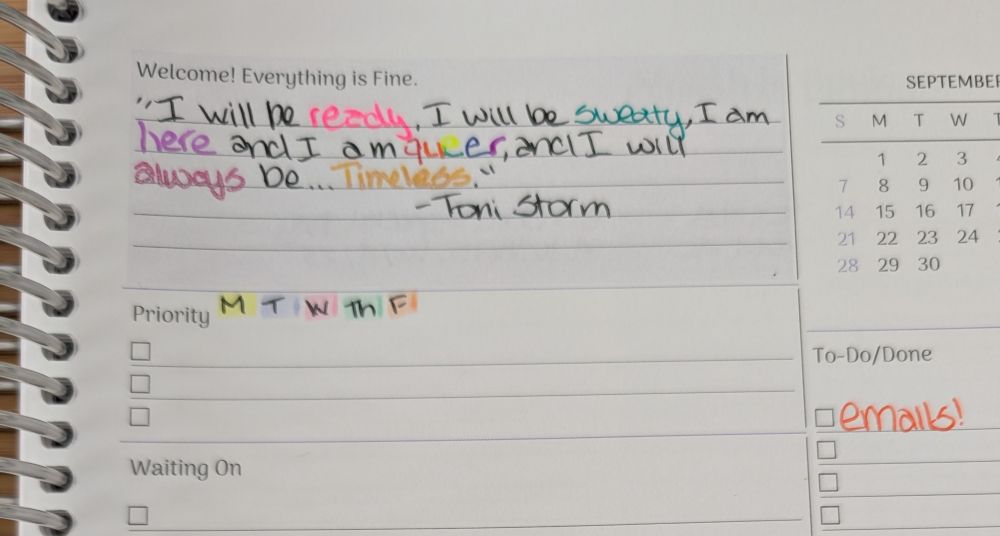 Welcome! Everything is Fine.
"I will be ready, I will be sweaty, I am
here and I am queer, and I will
always be... Timeless."
-Toni Storm
SEPTEMBER
S M T W T
1 2 3
7 8 9 10
14 15 16 17
21 22 23 24
28 29 30
Priority M T W Th F
To-Do/Done
emails!
Waiting On